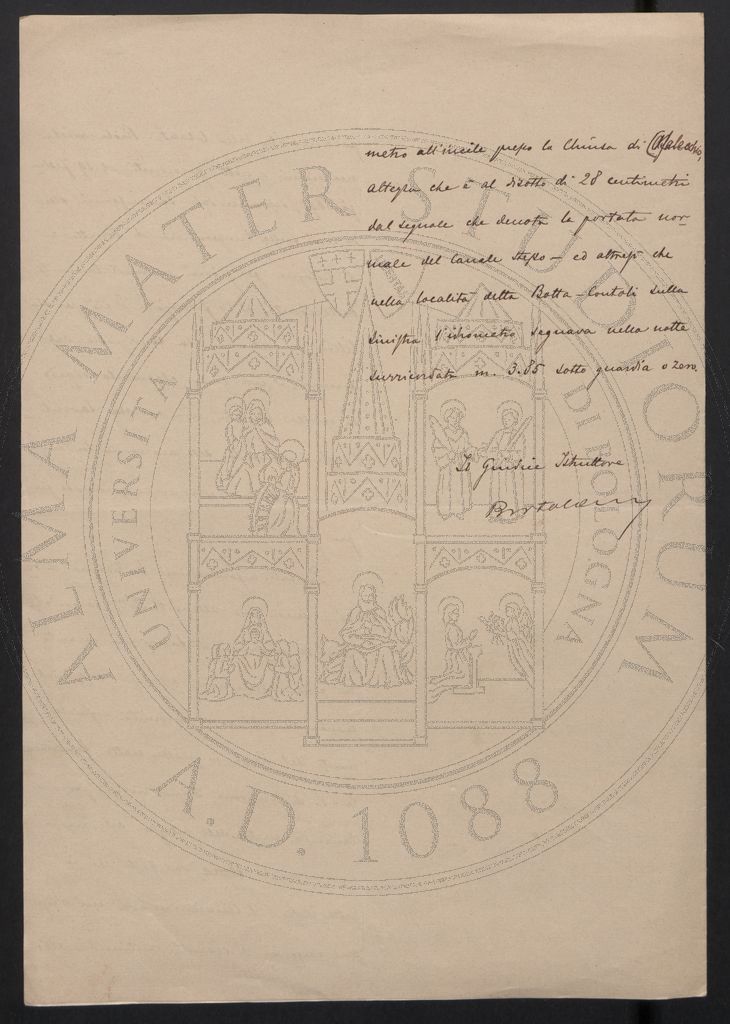 metro all'incile presso la Chiusa di Casalecchio,
altezza che è al disotto di 28 centimetri
dal segnale che denota la portata nor-
male del Canale stesso – ed altresì che
nella località detta Botta – Contoli sulla
sinistra l'idrometro segnava nella notte
surricordata m. 3.85 sotto guardia o zero.
Il Giudice Istruttore
ALMA MATER STUDIORUM
UNIVERSITA DI BOLOGNA
A.D. 1088